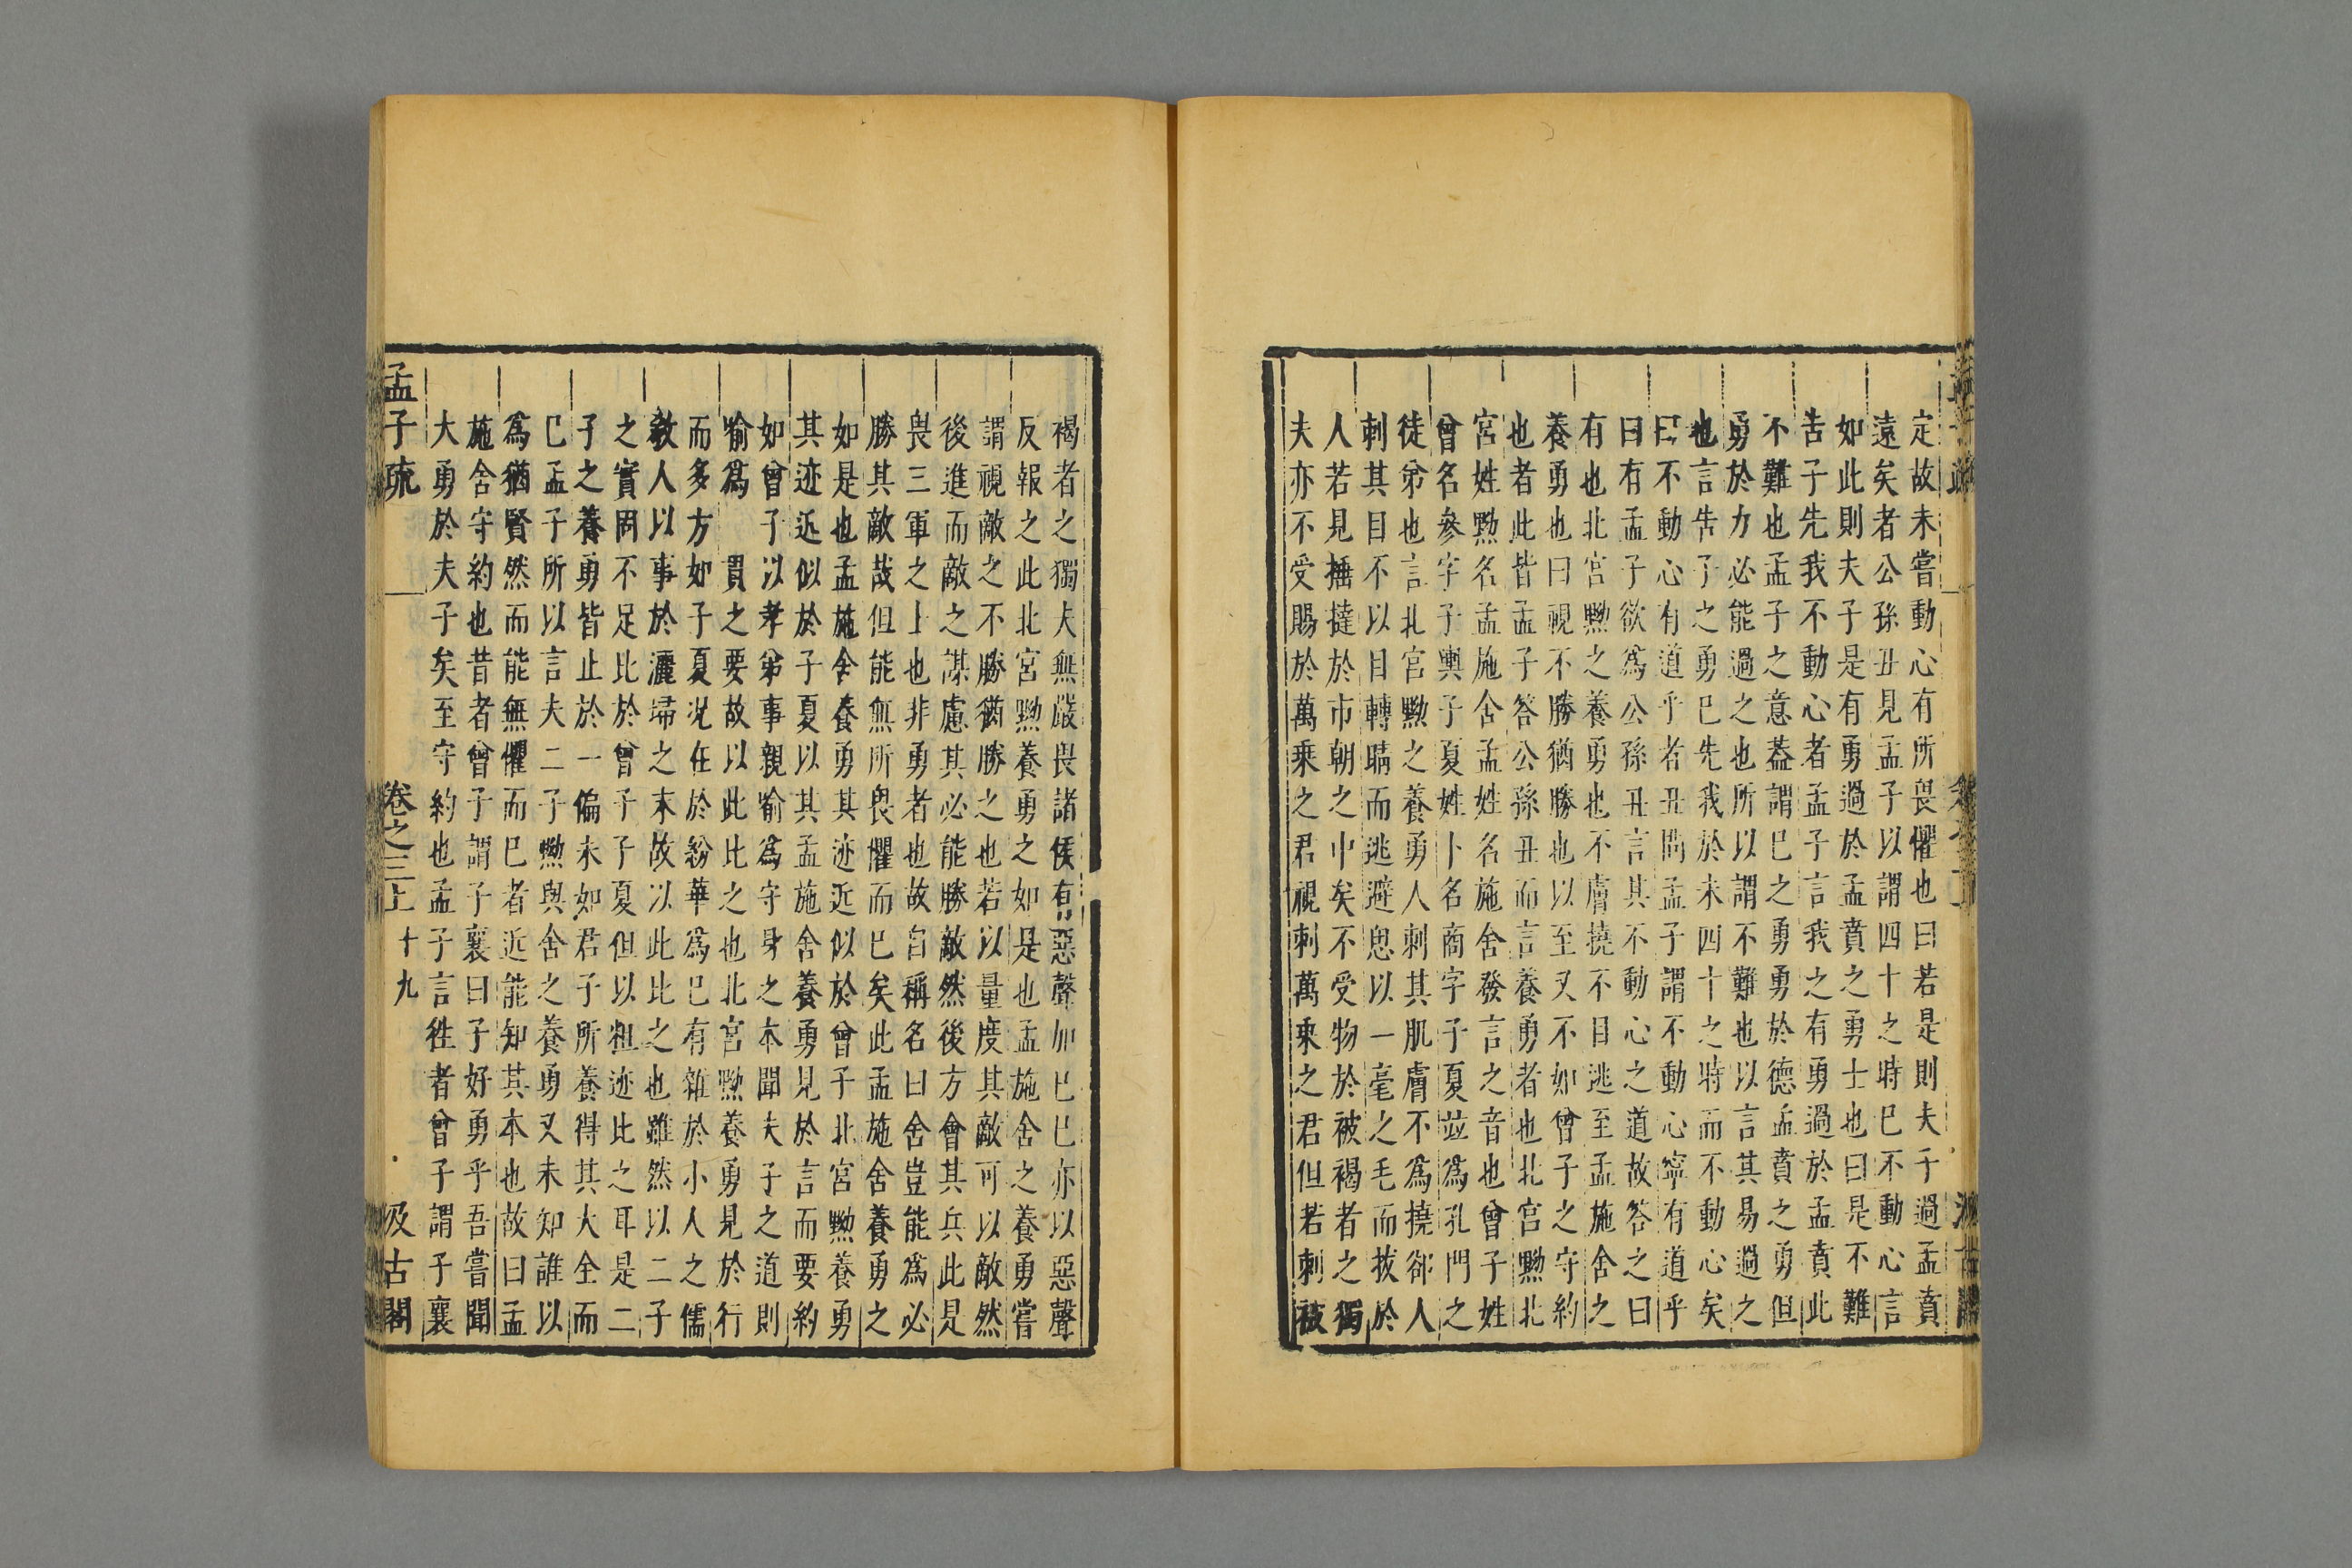 定故未嘗動心有所畏懼也曰若是則夫子過孟賁
遠矣者公孫丑見孟子以謂四十之時已不動心言
如此則夫子是有勇過於孟賁之勇士也曰是不難
告子先我不動心者孟子言我之有勇過於孟賁此
不難也孟子之意蓋謂已之勇勇於德孟賁之勇但
勇於力必能過之也所以謂不難也以言其易過之
也言告子之勇已先我於未四十之時而不動心矣
曰不動心有道乎者丑問孟子謂不動心寧有道乎
曰有孟子欲爲公孫丑言其不動心之道故答之曰
有也北宮黝之養勇也不膚撓不目逃至孟施舍之
養勇也曰視不勝猶勝也以至又不如曾子之守約
也者此皆孟子答公孫丑而言養勇者也北宮黝北
宮姓黝名孟施舍孟姓名施舍發言之音也曾子姓
曾名參字子輿子夏姓卜名商字子夏竝爲孔門之
徒弟也言北宮黝之養勇人刺其肌膚不爲撓卻人
刺其目不以目轉睛而逃避思以一毫之毛而拔於
人若見捶撻於市朝之中矣不受物於被褐者之獨
夫亦不受賜於萬乘之君視刺萬乘之君但若刺被
褐者之獨夫無嚴畏諸侯有惡聲加已已亦以惡聲
反報之此北宮黝養勇之如是也孟施舍之養勇嘗
謂視敵之不勝猶勝之也若以量度其敵可以敵然
後進而敵之謀慮其必能勝敵然後方會其兵此是
畏三軍之上也非勇者也故自稱名曰舍豈能爲必
勝其敵哉但能無所畏懼而已矣此孟施舍養勇之
如是也孟施舍養勇其迹近似於曾子北宮黝養勇
其迹近似於子夏以其孟施舍養勇見於言而要約
如曾子以孝弟事親喻爲守身之本聞夫子之道則
喻爲一貫之要故以此比之也北宮黝養勇見於行
而多方如子夏況在於紛華爲已有雜於小人之儒
教人以事於灑埽之末故以此比之也雖然以二子
之實固不足比於曾子子夏但以粗迹比之耳是二
子之養勇皆止於一偏未如君子所養得其大全而
已孟子所以言夫二子黝與舍之養勇又未知誰以
爲猶賢然而能無懼而已者近能知其本也故曰孟
施舍守約也昔者曾子謂子襄曰子好勇乎吾嘗聞
大勇於夫子矣至守約也孟子言往者曾子謂子襄
孟子疏 卷之三上 十九 汲古閣